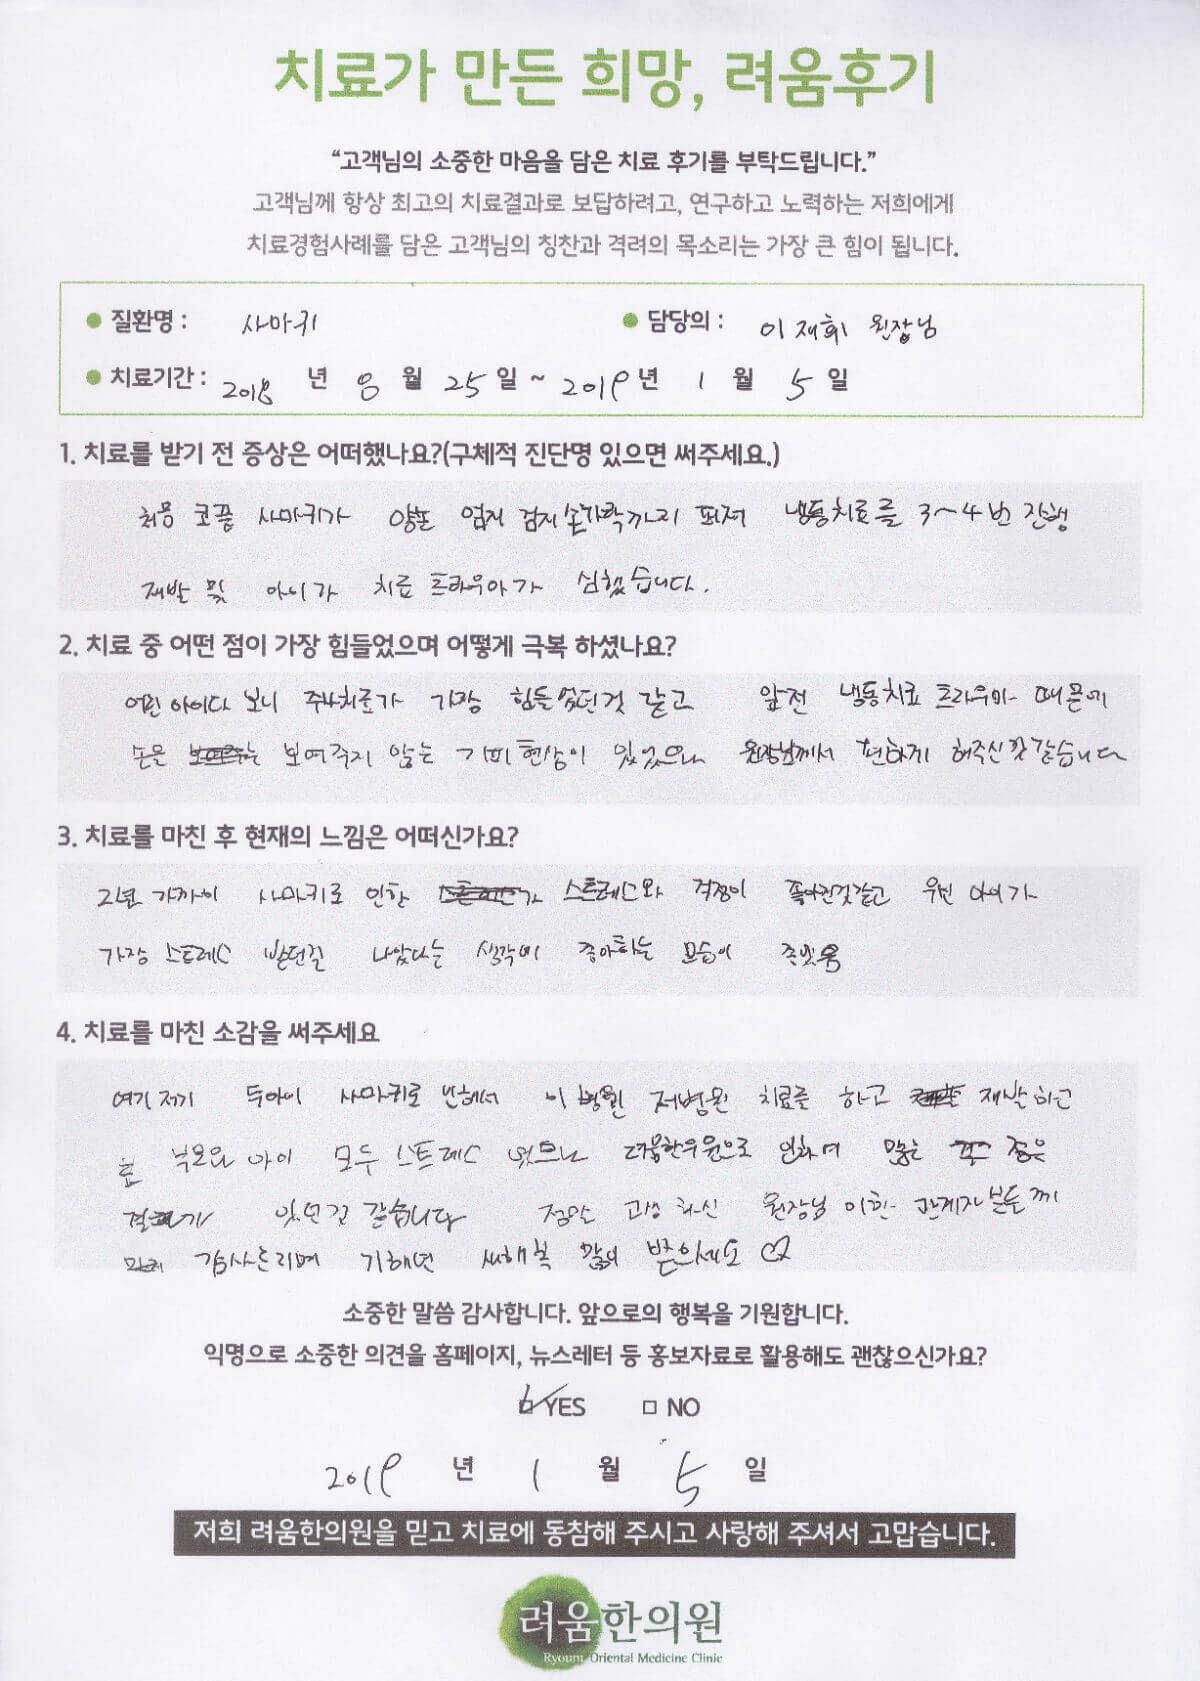 치료가 만든 희망, 려움후기
“고객님의 소중한 마음을 담은 치료 후기를 부탁드립니다.”
고객님께 항상 최고의 치료결과로 보답하려고, 연구하고 노력하는 저희에게
치료경험사례를 담은 고객님의 칭찬과 격려의 목소리는 가장 큰 힘이 됩니다.
질환명 : 사마귀 담당의 : 이재휘 원장님
치료기간 : 2018 년 8 월 25 일 ~ 2019 년 1 월 5 일
1. 치료를 받기 전 증상은 어떠했나요?(구체적 진단명 있으면 써주세요.)
처음 코쪽 사마귀가 양손 엄지 검지 손가락까지 퍼져 냉동치료를 3~4번 진행
재발 및 아이가 치료 트라우마가 심했습니다.
2. 치료 중 어떤 점이 가장 힘들었으며 어떻게 극복 하셨나요?
어린 아이다 보니 주사치료가 가장 힘들었던것 같고 앞전 냉동치료 트라우마 때문에
손을 보여주지 않는 기피현상이 있었으나 원장님께서 편하게 해주신것 같습니다
3. 치료를 마친 후 현재의 느낌은 어떠신가요?
2년 가까이 사마귀로 인한 스트레스와 걱정이 좋아진것같고 우선 아이가
가장 스트레스 받던걸 나았다는 생각에 좋아하는 모습이
4. 치료를 마친 소감을 써주세요
여기 저기 두아이 사마귀로 인해서 이병원 저병원 치료를 하고 재발하고
부모와 아이 모두 스트레스 였으나 려움한의원으로 인하여 많은 좋은
결과가 있던것 같습니다 정말 고생하신 원장님 이하 관계자분들께
감사드리며 기해년 새해복 많이 받으세요 ♡
소중한 말씀 감사합니다. 앞으로의 행복을 기원합니다.
익명으로 소중한 의견을 홈페이지, 뉴스레터 등 홍보자료로 활용해도 괜찮으신가요?
YES NO
2019 년 1 월 5 일
저희 려움한의원을 믿고 치료에 동참해 주시고 사랑해 주셔서 고맙습니다.
려움한의원
Ryoum Oriental Medicine Clinic